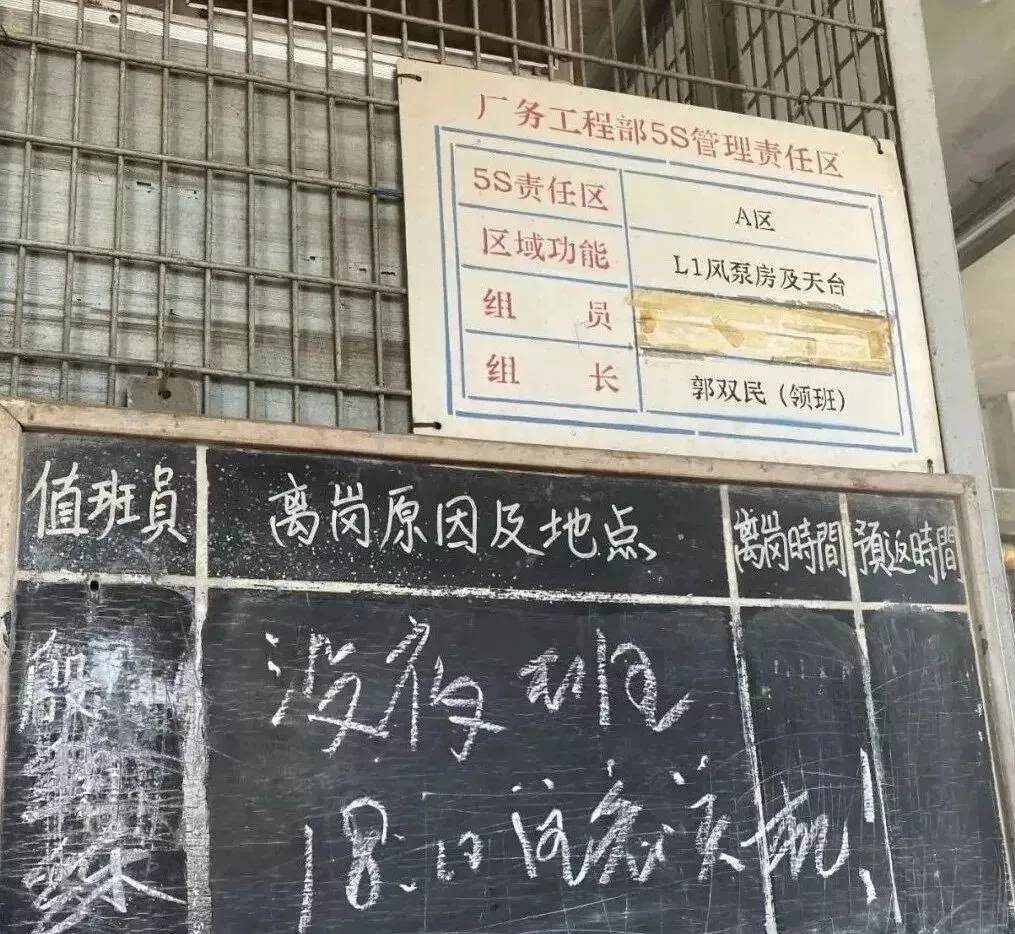 厂务工程部5S管理责任区
5S责任区 A区
区域功能 L1风泵房及天台
组 员
组 长 郭双民（领班）
值班员 离岗原因及地点 离岗时間 预返時間
殷 没夜班
18:00 注意关机!